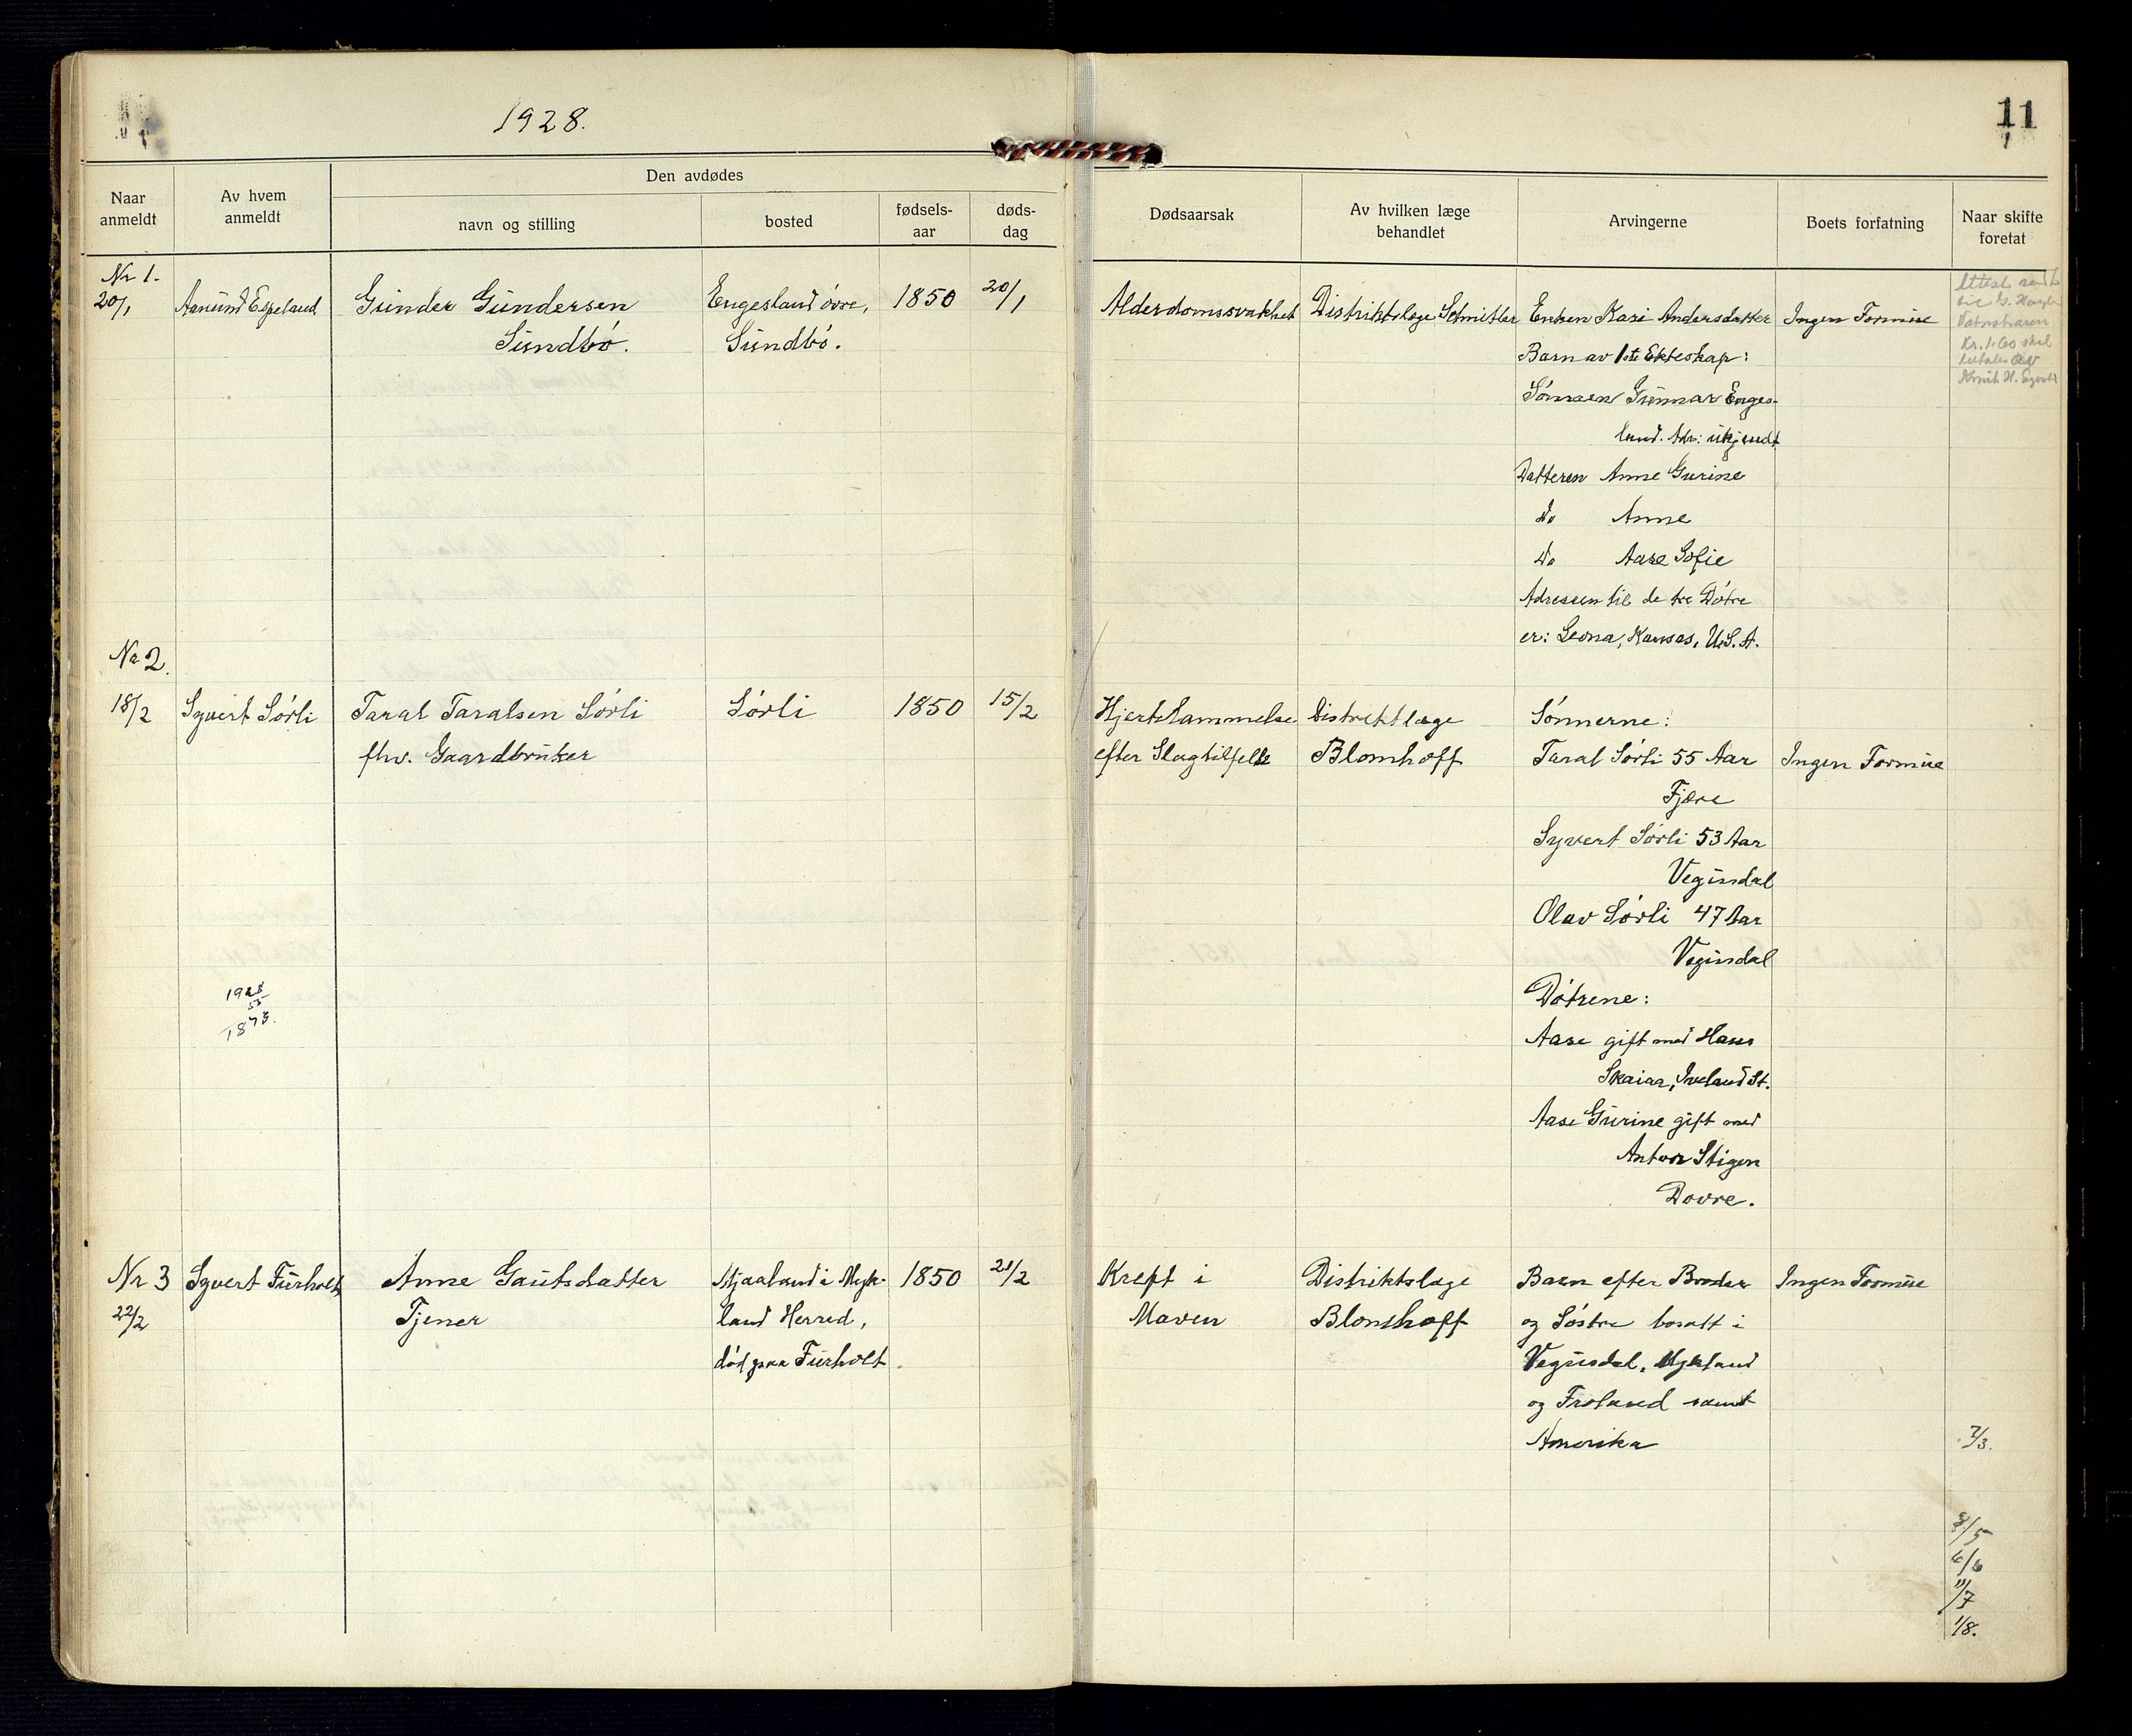 1928.
11
Naar anmeldt
Av hvem anmeldt
Den avdødes
navn og stilling
bosted
fødsels-aar
døds-dag
Dødsaarsak
Av hvilken læge behandlet
Arvingerne
Boets forfatning
Naar skifte foretat
Nr 1.
20/1
Aanund Espeland
Gunder Gundersen
Sundbö.
Engesland övre,
Sundbö.
1850
20/1
Alderdomssvakhet
Distriktslæge Schmitler
Enken Kari Andersdatter
Barn av 1ste Ekteskap:
Sönnen Gunnar Enges-
land. Adr: ukjendt
Datteren Anne Gurine
do Anne
do Aase Sofie
Adressen til de tre Dötre
er: Leona, Kansas, U.S.A.
Ingen Formue
Attest sendt
Kr. 1.60 skal
betales av
Nr 2.
18/2
Syvert Sörli
Taral Taralsen Sörli
fhv. Gaardbruker
Sörli
1850
15/2
Hjertelammelse
efter Slagtilfelde
Distriktlæge
Blomhoff
Sönnerne:
Taral Sörli 55 Aar
Fjære
Syvert Sörli 53 Aar
Vegusdal
Olav Sörli 47 Aar
Vegusdal
Dötrene:
Aase gift med Hans
Skaiaa, Iveland St.
Aase Gurine gift med
Anton Stigen
Dovre.
Ingen Formue
1928
55
1873.
Nr 3
22/2
Syvert Furholt
Anne Gautsdatter
Tjener
Mjaaland i Myk-
land Herred,
död paa Furholt.
1850
21/2
Kreft i
Maven
Distriktslæge
Blomhoff
Barn efter Broder
og Söstre bosatt i
Vegusdal, Mykland
og Froland samt
Amerika
Ingen Formue
7/3.
8/5
6/6
11/7
1/8.